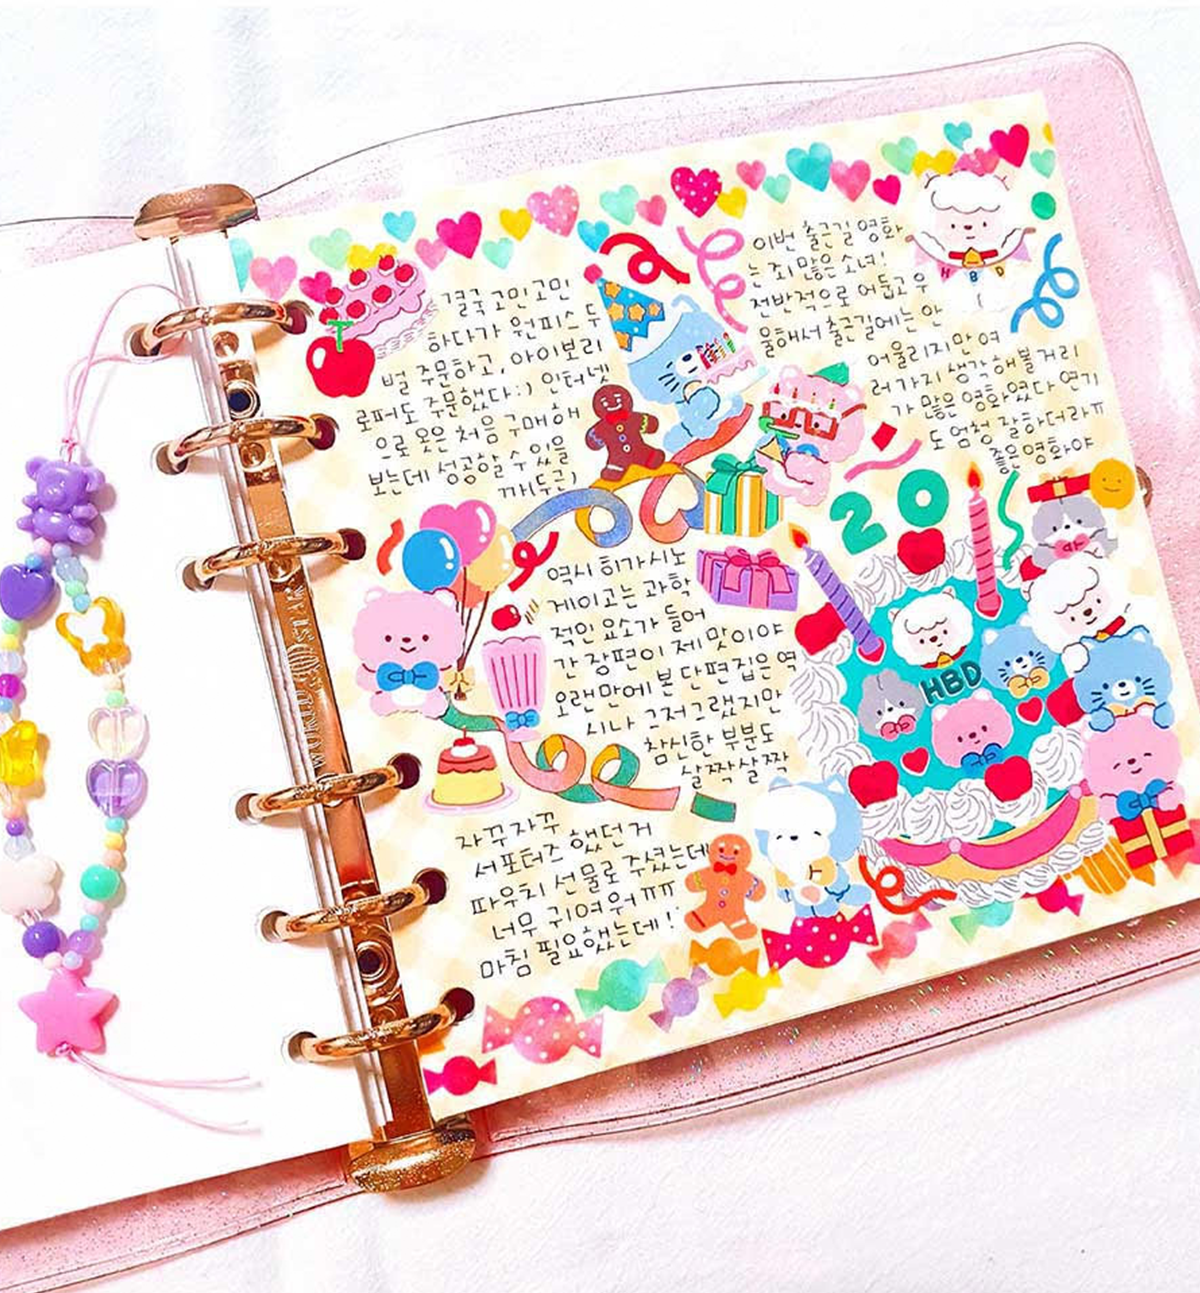 결국 고민고민
하다가 원피스 두
벌 주문하고, 아이보리
로퍼도 주문했다:) 인터넷
으로 옷은 처음 구매해
보는데 성공할 수 있을
까(두근)
이번 출근길 영화
는 죄 많은 소녀!
전반적으로 어둡고 우
울해서 출근길에는 안
어울리지만 여
러가지 생각해볼 거리
가 많은 영화였다 연기
도 엄청 잘하더라ㅠ
영화야
HBD
20
역시 히가시노
게이고는 과학
적인 요소가 들어
간 장편이 제맛이야
오랜만에 본 단편집은 역
시나 그저그랬지만
참신한 부분도
살짝살짝
HBD
자꾸자꾸
서포터즈 했던거
파우치 선물로 주셨는데
너무 귀여워ㅠㅠ
마침 필요했는데!